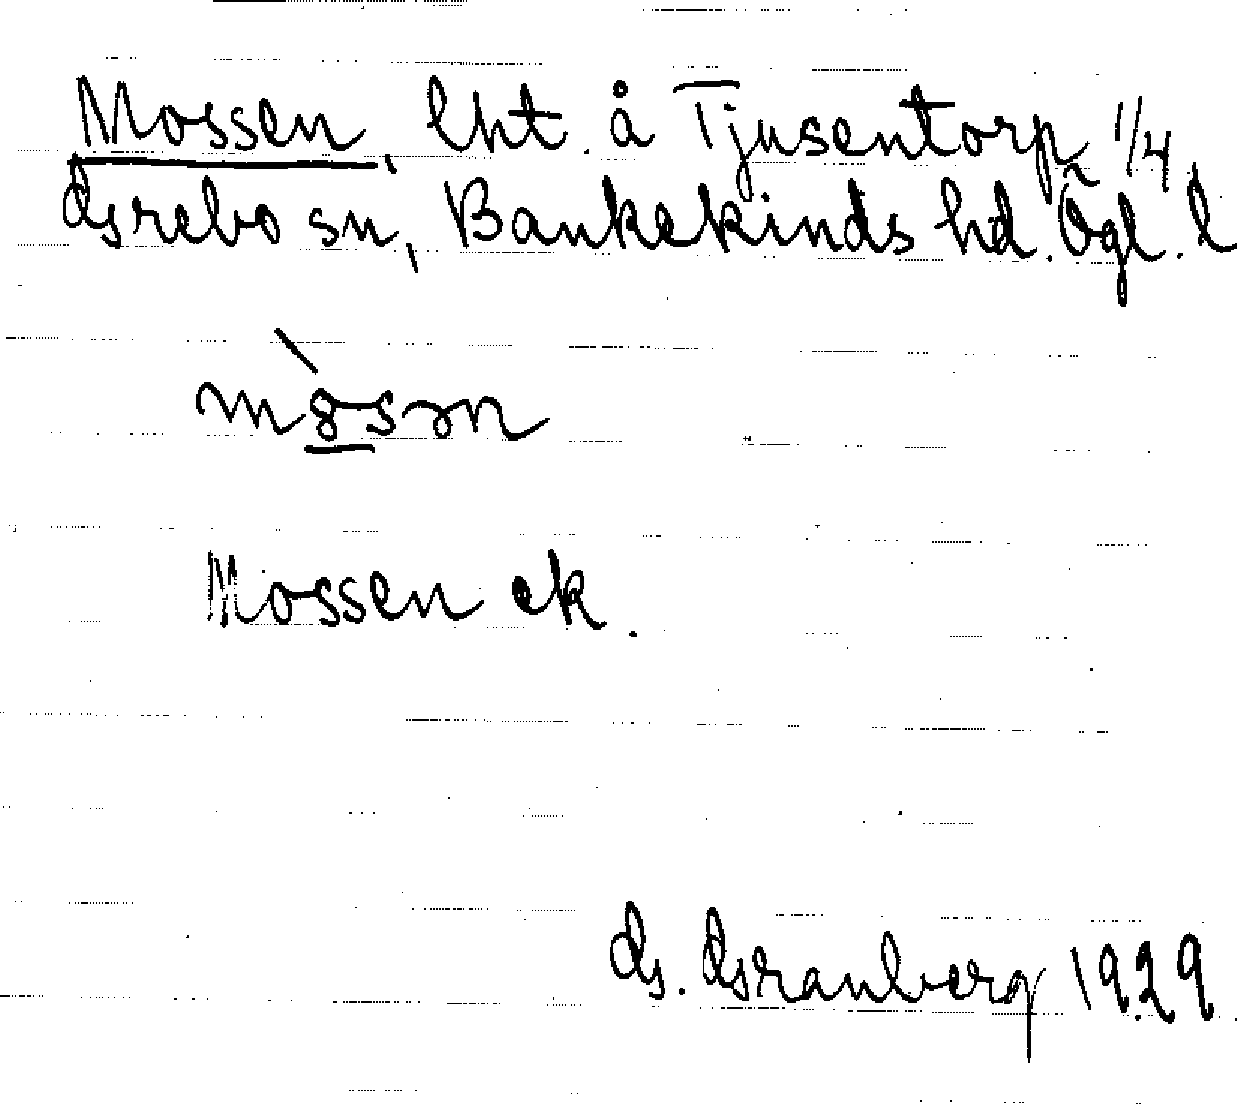 Mossen, lht. å Tjusentorp 1/4
Grebo sn, Bankekinds hd. Ögl. l
Mossen ek.
G. Granberg 1929